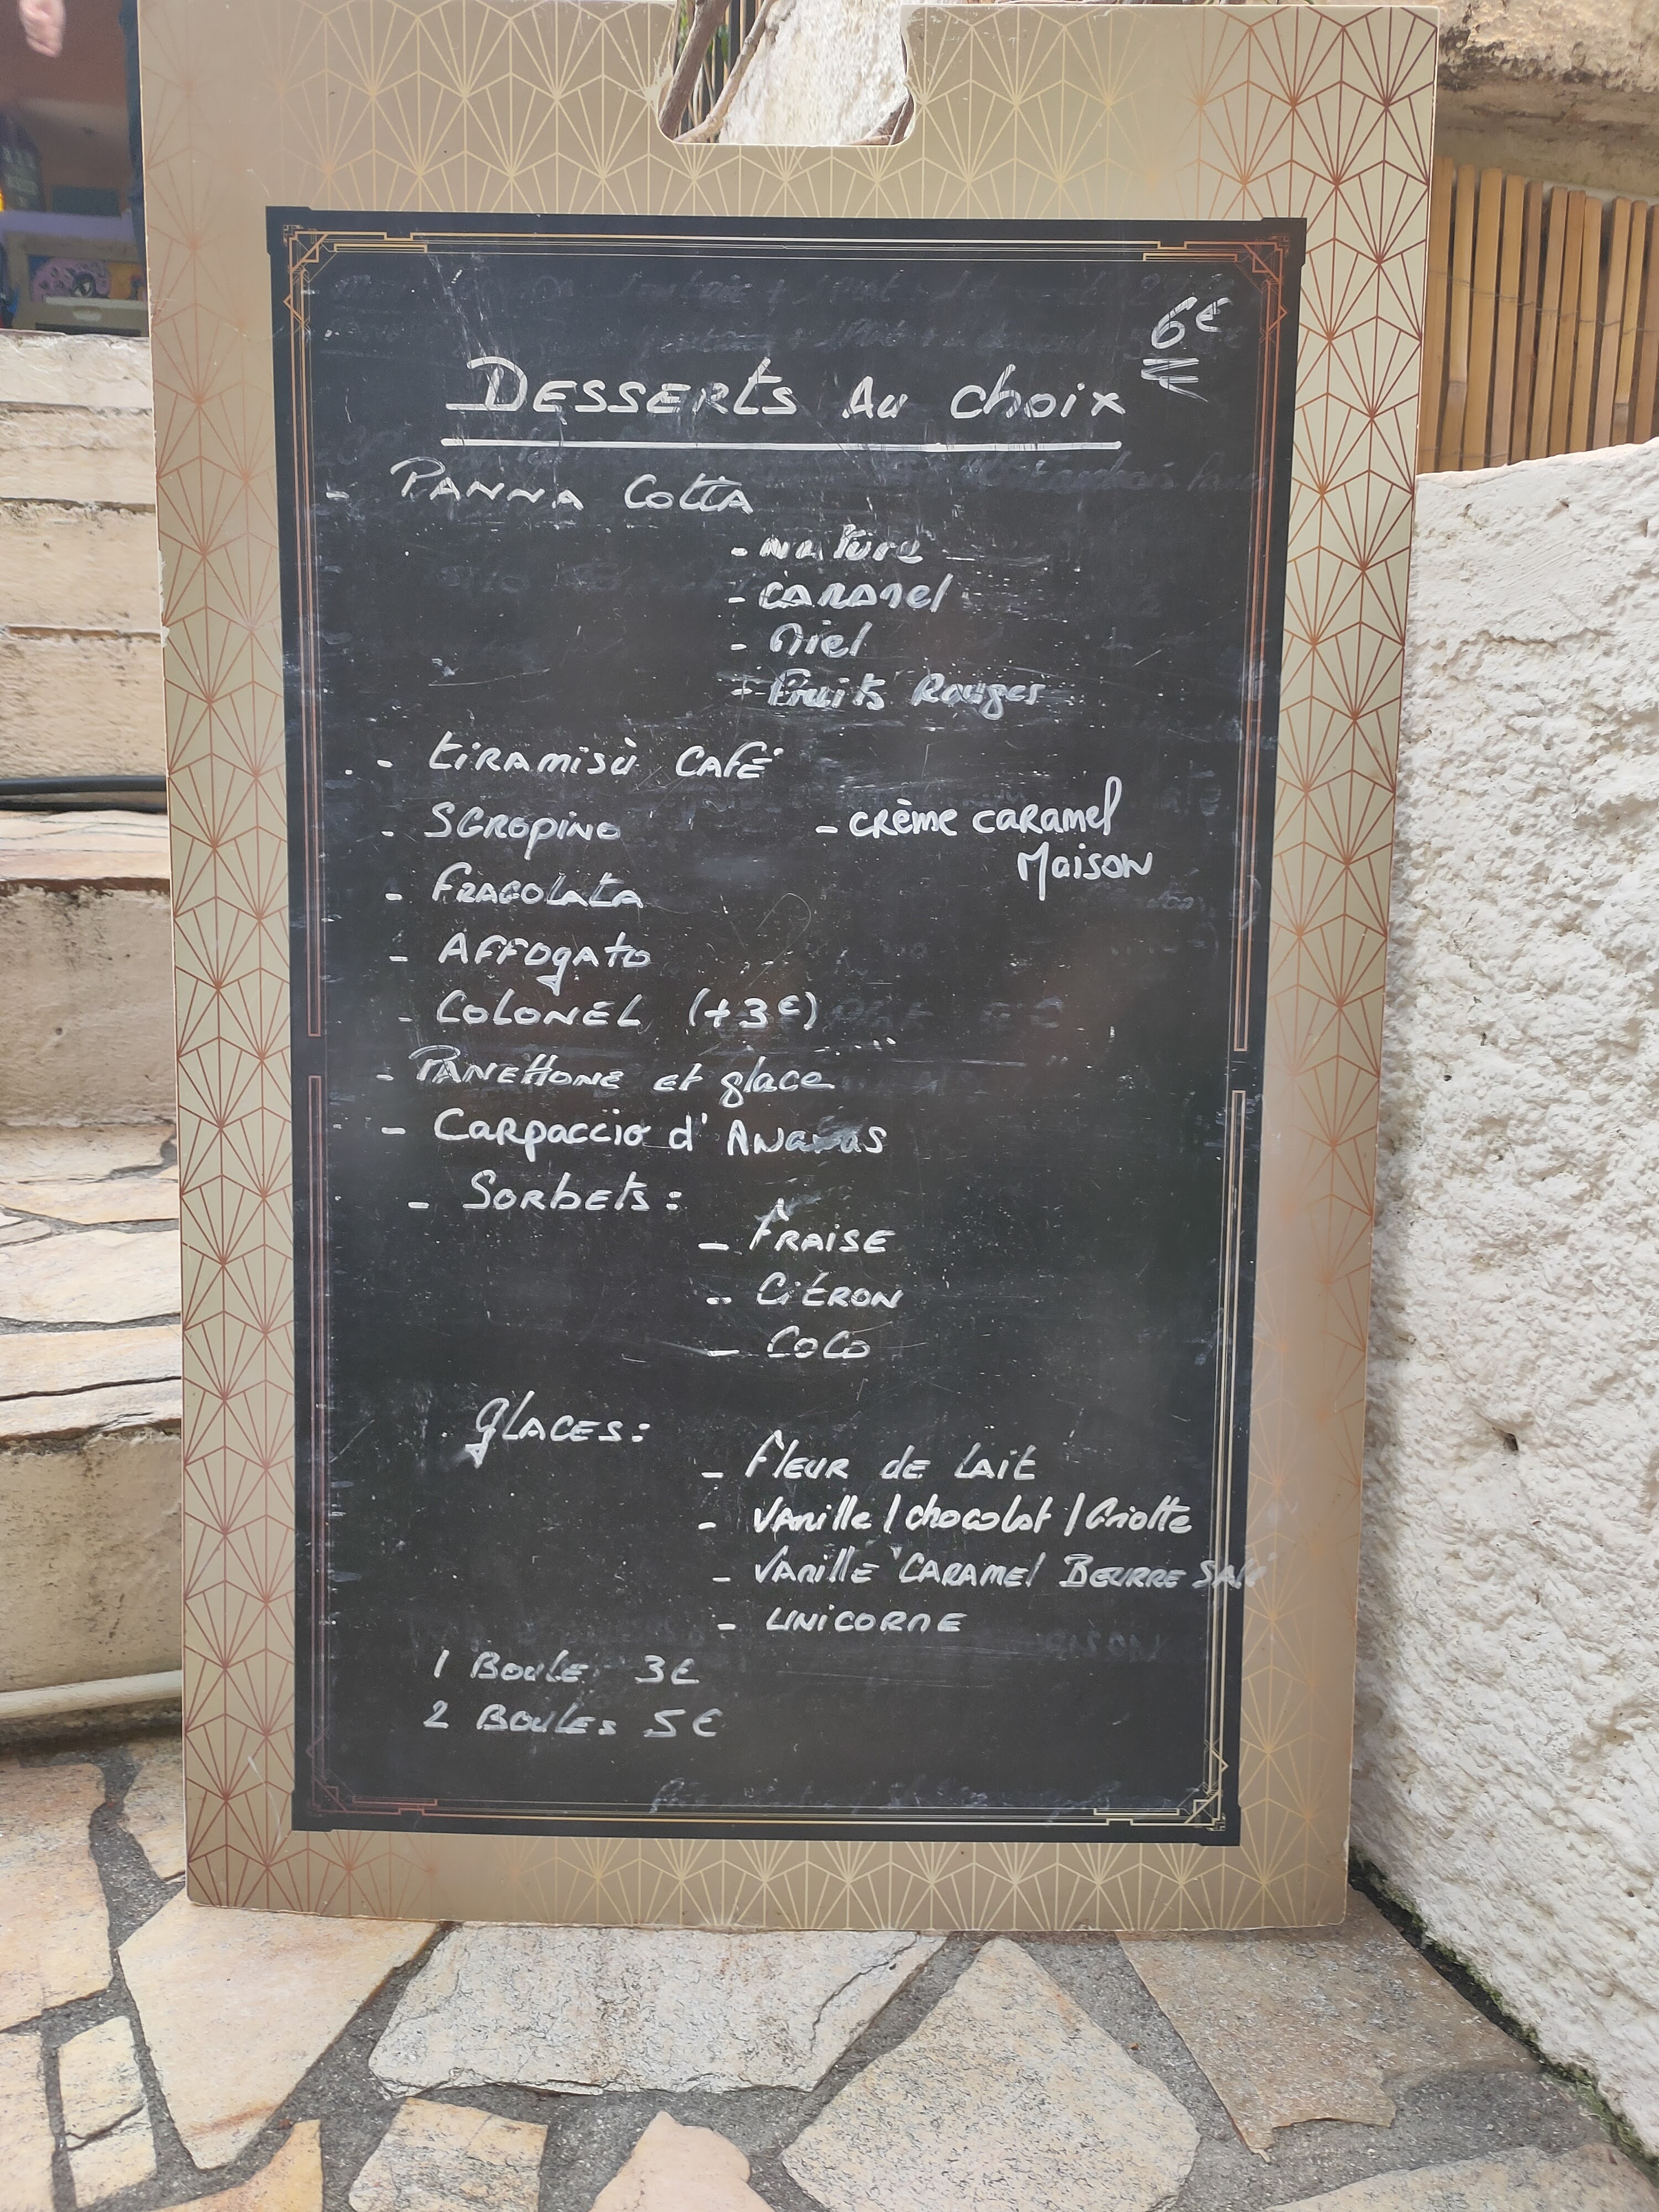 6€
DESSERTS AU choix
- PANNA COTTA
- NATURE
- CARAMEL
- Miel
- Fruits Rouges
- TIRAMISÙ CAFÉ
- SGROPINO
- CRÈME CARAMEL
MAISON
- FRAGOLATA
- AFFOGATO
- COLONEL (+3€)
- PANETTONE et glace
- CARPACCIO d'ANANAS
- SORBETS :
- FRAISE
- CITRON
- COCO
GLACES :
- FLEUR DE LAIT
- Vanille / chocolat / Griotte
- VANILLE CARAMEL BEURRE SALÉ
- UNICORNE
1 BOULE 3€
2 BOULES 5€